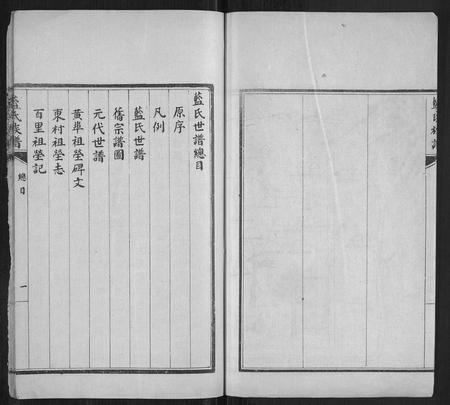 藍氏世譜總目
原序
凡例
藍氏世譜
舊宗譜圖
元代世譜
黃埠祖塋碑文
東村祖塋志
百里祖塋記
藍氏族譜
總目
一
藍氏族譜